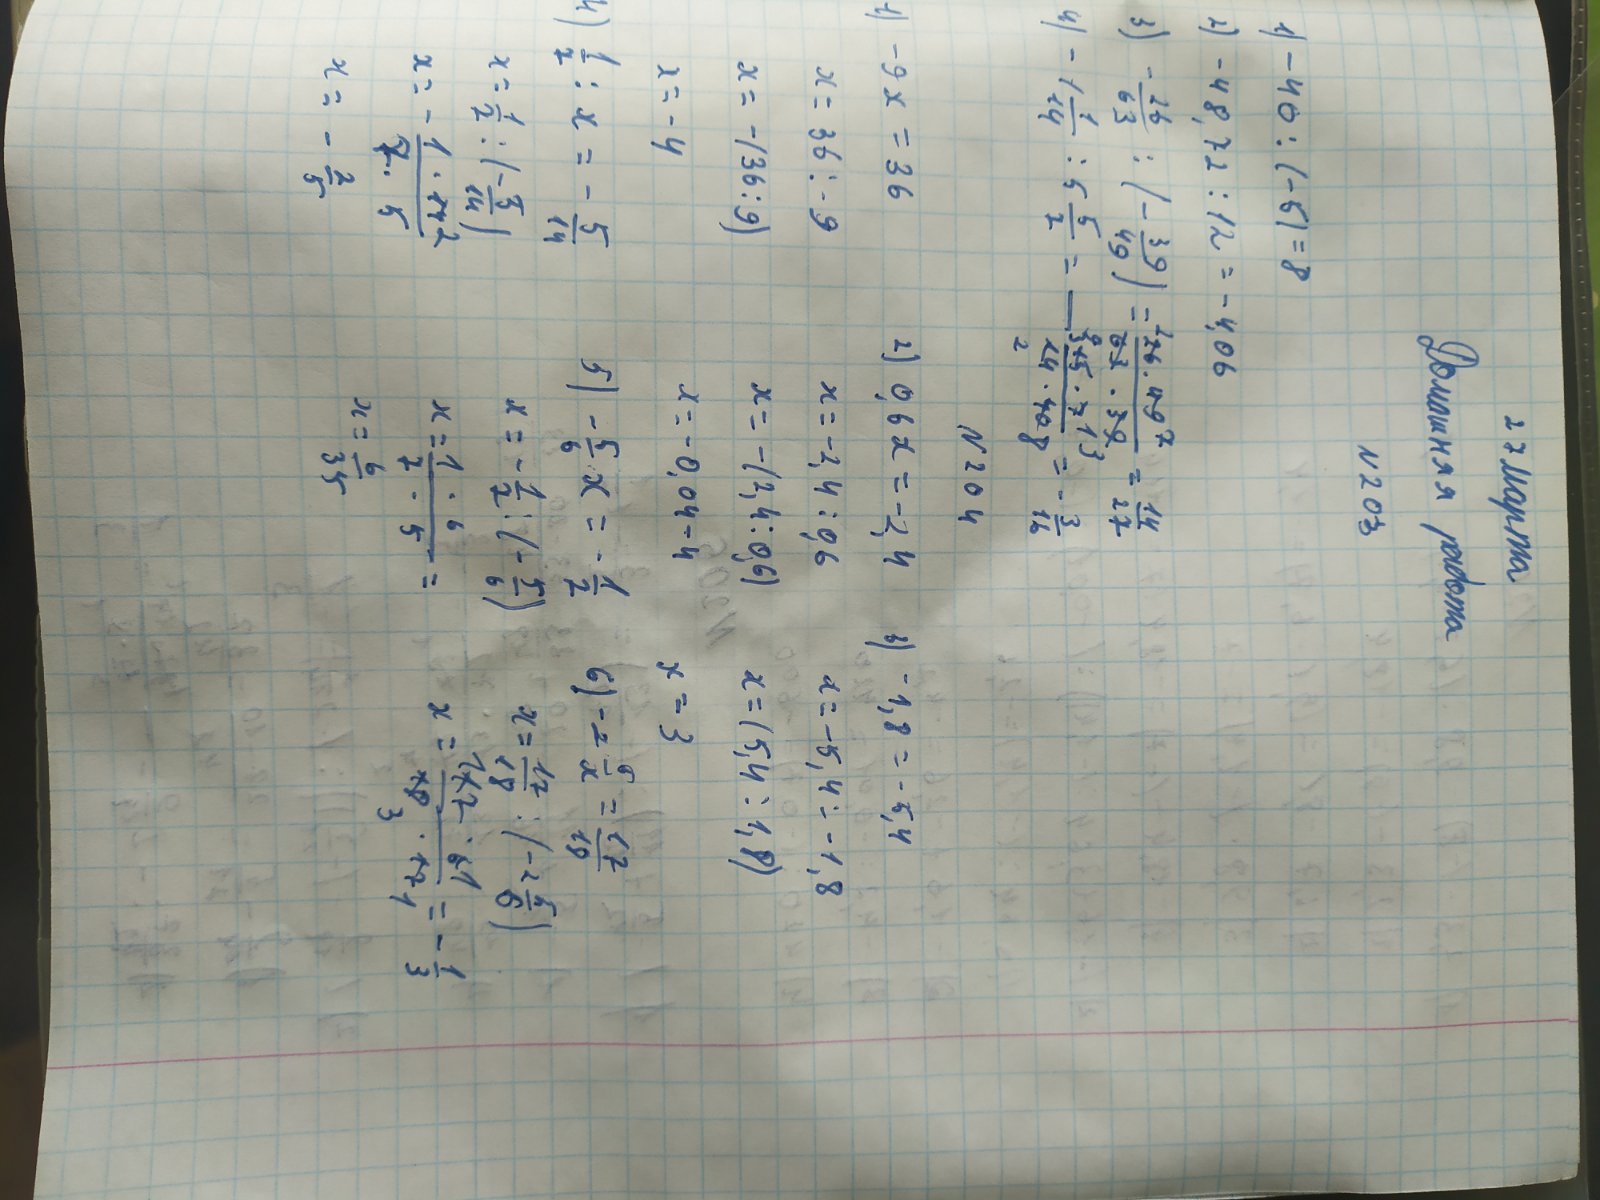 27 марта
Домашняя работа
N 203
1) -40 : (-5) = 8
2) -48,72 : 12 = -4,06
3) -26/63 : (-39/49) = 26 · 49/63 · 39 = 14/27
4) -1 1/14 : 5 5/7 = - 15 · 7/14 · 40 = -3/16
N 204
1) -9x = 36
x = 36 : -9
x = -(36:9)
x = -4
2) 0,6x = -2,4
x = -2,4 : 0,6
x = -(2,4 : 0,6)
x = -0,04-4
3) -1,8 = -5,4
x = -5,4 : -1,8
x = (5,4 : 1,8)
x = 3
4) 1/7 : x = -5/14
x = - 1 · 14 2/7 · 5
x = - 2/5
5) -5/6 x = -1/7
x = -1/7 : (-5/6)
x = 1 · 6/7 · 5 =
x = 6/35
x = 17/18 : (-2 5/6)
x = 17 · 6/18 · 17 = - 1/3